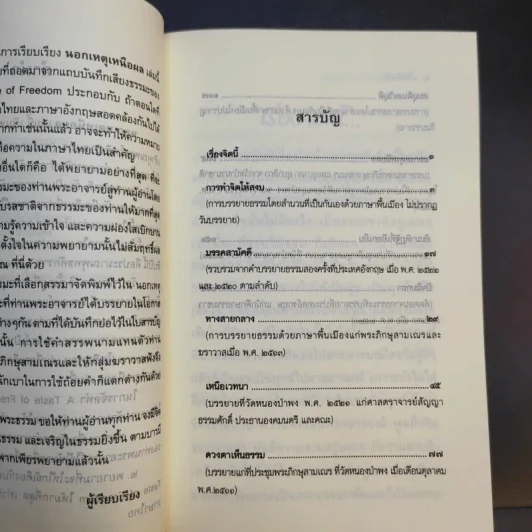 การเรียบเรียง นอกเหตุเหนือผล เล่มนี้
ที่ถอดมาจากแถบบันทึกเสียงธรรมะของ
of Freedom ประกอบกับ ถ้าตอนใดที่
ไทยและภาษาอังกฤษสอดคล้องกันไปได้
ากทำเช่นนั้นแล้ว อาจจะทำให้ความหมาย
ือความในภาษาไทยเป็นสำคัญ
อื่นใดก็คือ ได้พยายามอย่างที่สุด ที่จะ
รมะของท่านพระอาจารย์สู่ท่านผู้อ่านโดย
บรสชาติจากธรรมะของท่านให้มากที่สุด
รู้ความเข้าใจ และความฝ่องใสเบิกบาน
ตั้งใจในความพยายามนั้นไม่สัมฤทธิ์ผล
ณ ที่นี้ด้วย
มะที่เลือกสรรมาจัดพิมพ์ไว้ใน นอกเหตุ
ที่ท่านพระอาจารย์ได้บรรยายในโอกาส
ต่างๆกัน ตามที่ได้บันทึกย่อไว้ในใบสารบัญ
นั้น การใช้คำสรรพนามแทนตัวท่าน
ภิกษุสามเณรและให้กลุ่มฆราวาสฟังจึง
นักเบาในการใช้ถ้อยคำก็แตกต่างกันด้วย
พระธรรม ขอให้ท่านผู้อ่านทุกท่าน จงมีจิต
ธรรม และเจริญในธรรมยิ่งขึ้น ตามบารมี
จากเพียรพยายามแล้วนั้น
ผู้เรียบเรียง
สารบัญ
เรื่องจิตนี้ ๑
การทำจิตให้สงบ ๓
(การบรรยายธรรมโดยสำนวนที่เป็นกันเองด้วยภาษาพื้นเมือง ไม่ปรากฏ
วันบรรยาย)
มรรคสามัคคี ๑๗
(รวบรวมจากคำบรรยายธรรมสองครั้งที่ประเทศอังกฤษ เมื่อ พ.ศ. ๒๕๒๒
และ ๒๕๒๐ ตามลำดับ)
ทางสายกลาง ๒๙
(การบรรยายธรรมด้วยภาษาพื้นเมืองแก่พระภิกษุสามเณรและ
ฆราวาสเมื่อ พ.ศ. ๒๕๑๓)
เหนือเวทนา ๔๕
(บรรยายที่วัดหนองป่าพง พ.ศ. ๒๕๒๑ แก่ศาสตราจารย์สัญญา
ธรรมศักดิ์ ประธานองคมนตรี และคณะ)
ดวงตาเห็นธรรม ๗๗
(บรรยายแก่ที่ประชุมพระภิกษุสามเณร ที่วัดหนองป่าพง เมื่อเดือนตุลาคม
พ.ศ.๒๕๑๑)